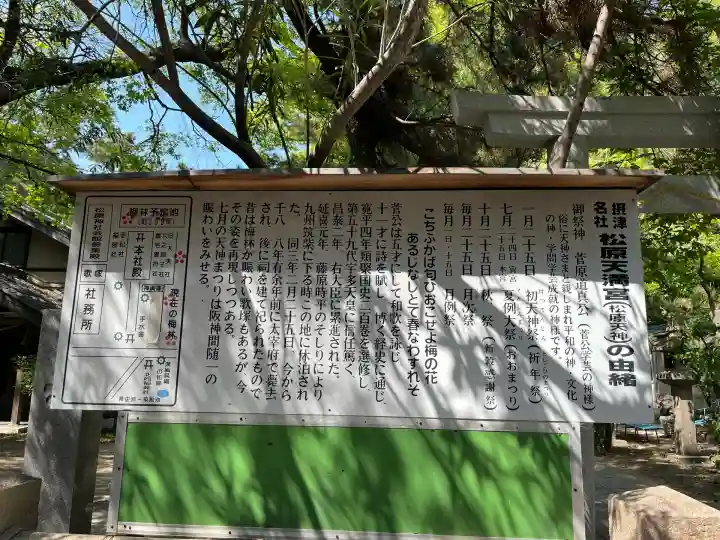 摂津名社 松原天満宮(松原天神)の由緒
御祭神 菅原道真公(菅公学芸の神様)
俗に天神さまと親しまれ平和の神・文化の神・学問学芸成就の神様です。
一月二十五日 初天神祭(祈年祭)
七月二十四日 宵宮 二十五日 本宮 夏例大祭(おおまつり)
十月二十五日 秋祭(新穀感謝祭)
毎月二十五日 月次祭
毎月一日・十五日 月例祭
こちふかば匂ひおこせよ梅の花
あるじなしとて春なわすれそ
菅公は五才にして和歌を詠じ
十一才に詩を賦し、博く経史に通じ
寛平四年類聚国史二百巻を選修し
第五十九代宇多天皇に信任篤く
昌泰二年、右大臣に累進された。
延喜元年、藤原時平のそしりにより
九州筑紫に下る時、この地に休泊され
た。同三年二月二十五日、今から
千八、八年有余年前に太宰府で薨去
され、後に祠を建て祀られたもので
昔は梅林が賑わい歌塚もあるが、今
その姿を再現しつつある。
七月の天神まつりは阪神間随一の
賑わいをみせる。
梅林予定地
本社殿
歌塚
社務所
手水舎
現在の梅林